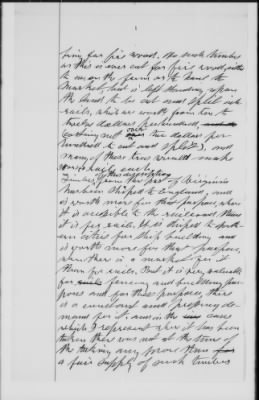 fine for fire wood. No such timber
as this is ever cut for fire wood, either
to use on the farm or to haul to
market, but is left standing upon
the land to be cut and split into
rails, which are worth from ten to
twelve dollars per hundred
(costing not over two dollars per
hundred to cut and split), and
many of these trees would make
rails each.
Timber of this description from this part of Virginia
has been shiped to England, and
is worth more for that purpose, where
it is accessible to the railroad than
it is for rails. It is shiped to
for ship building and
is worth more for that purpose,
when there is a market for it
than for rails. But it is very valuable
for fencing and building pur-
poses and for these purposes, there
is a constant and growing de-
mand for it. and in the cases
which I represent when it has been
taken there was not at the time of
the taking any more than
a fair supply of such timber